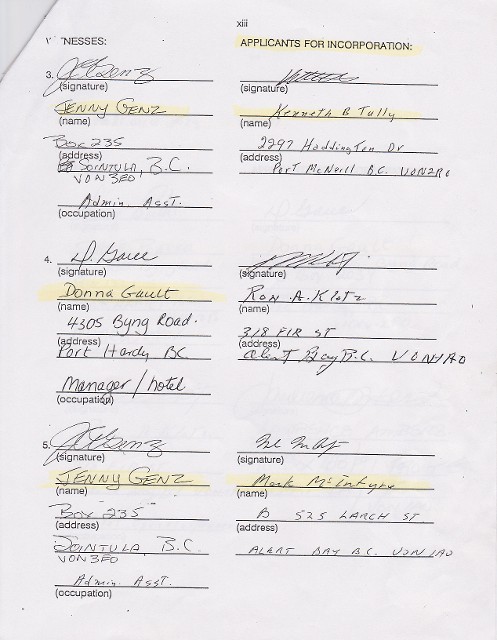 xiii
NESSES:
APPLICANTS FOR INCORPORATION:
3.
(signature)
(signature)
JENNY GENZ
Kenneth B Tully
(name)
(name)
Box 235
2297 Haddington Dr
(address)
(address)
SOINTULA, B.C.
Port McNeill B.C. V0N2R0
V0N 3E0
Admin. Asst.
(occupation)
4.
(signature)
(signature)
Donna Gault
Ron A. Klotz
(name)
(name)
4305 Byng Road.
318 FIR ST
(address)
(address)
Port Hardy BC
Alert Bay B.C. V0N1A0
Manager / hotel
(occupation)
5.
(signature)
(signature)
JENNY GENZ
Mark McIntyre
(name)
(name)
Box 235
B 525 LARCH ST
(address)
(address)
SOINTULA, B.C.
ALERT BAY B.C. V0N1A0
V0N 3E0
Admin. Asst.
(occupation)